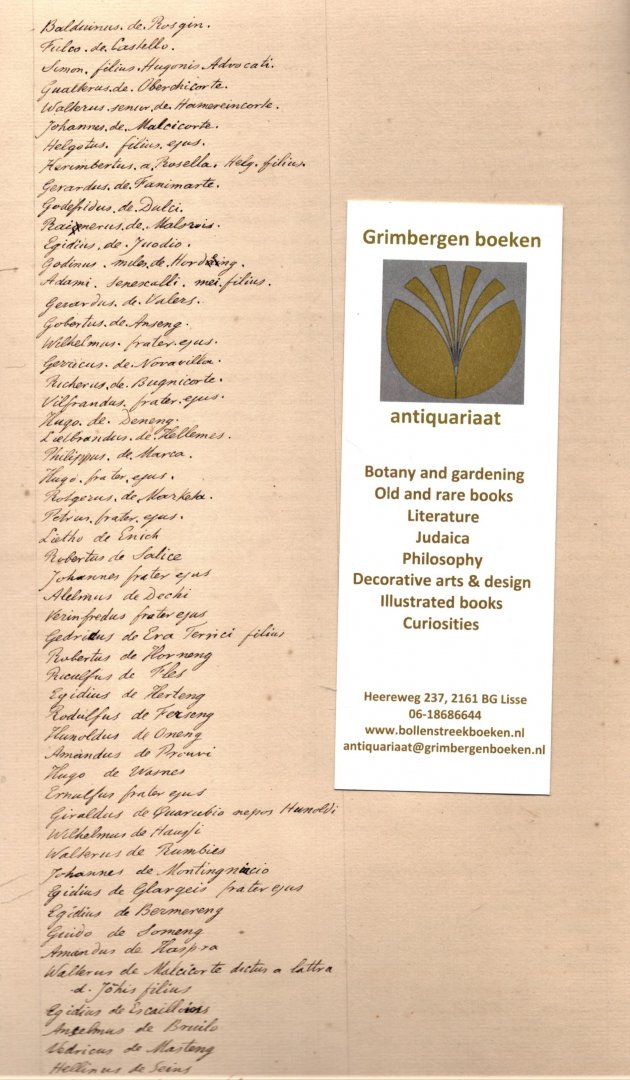 Balduinus. de. Rosgin.
Fulco. de. Castello.
Simon. filius. Hugonis. Advocati.
Gualterus. de. Oberchicorte.
Walterus. senior. de. Hamereincorte.
Johannes. de. Malcicorte.
Helgotus. filius. ejus.
Herimbertus. a. Rosella. Helg. filius.
Gerardus. de. Fanimarte.
Godefridus. de. Dulci.
de. Malsrois.
Egidius. de. Juodio.
Godinus. miles. de.
Adami. senescalli. mei. filius.
Gerardus. de. Valers.
Gobertus. de. Anseng.
Wilhelmus. frater. ejus.
de. Novavilla.
Richerus. de. Bugnicorte.
Vilfrandus. frater. ejus.
Hugo. de. Deneng.
de. Hellemes.
Philippus. de. Marca.
Hugo. frater. ejus.
Rotgerus. de.
Petrus. frater. ejus.
Lietho de Enich
Robertus de Salice
Johannes frater ejus
Alelmus de Dechi
Verinfredus frater ejus
de Era Terrici filius
Robertus de Horneng
Riculfus de Fles
Egidius de Herteng
Rodulfus de Ferseng
Hunoldus de Oneng
Amandus de Prouvi
Hugo de Wasnes
Ernulfus frater ejus
Giraldus de Quarubio nepos Hunoldi
Wilhelmus de Haussi
Walterus de Rumbies
Johannes de
Egidius de Glargeis frater ejus
Egidius de Bermereng
Guido de Someng
Amandus de Haspra
Walterus de Malcicorte dictus a lattra
d. Johis filius
Egidius de
Anselmus de Bruilo
Vedricus de Masteng
Hellinus de Seins
Grimbergen boeken
antiquariaat
Botany and gardening
Old and rare books
Literature
Judaica
Philosophy
Decorative arts & design
Illustrated books
Curiosities
Heereweg 237, 2161 BG Lisse
06-18686644
www.bollenstreekboeken.nl
antiquariaat@grimbergenboeken.nl